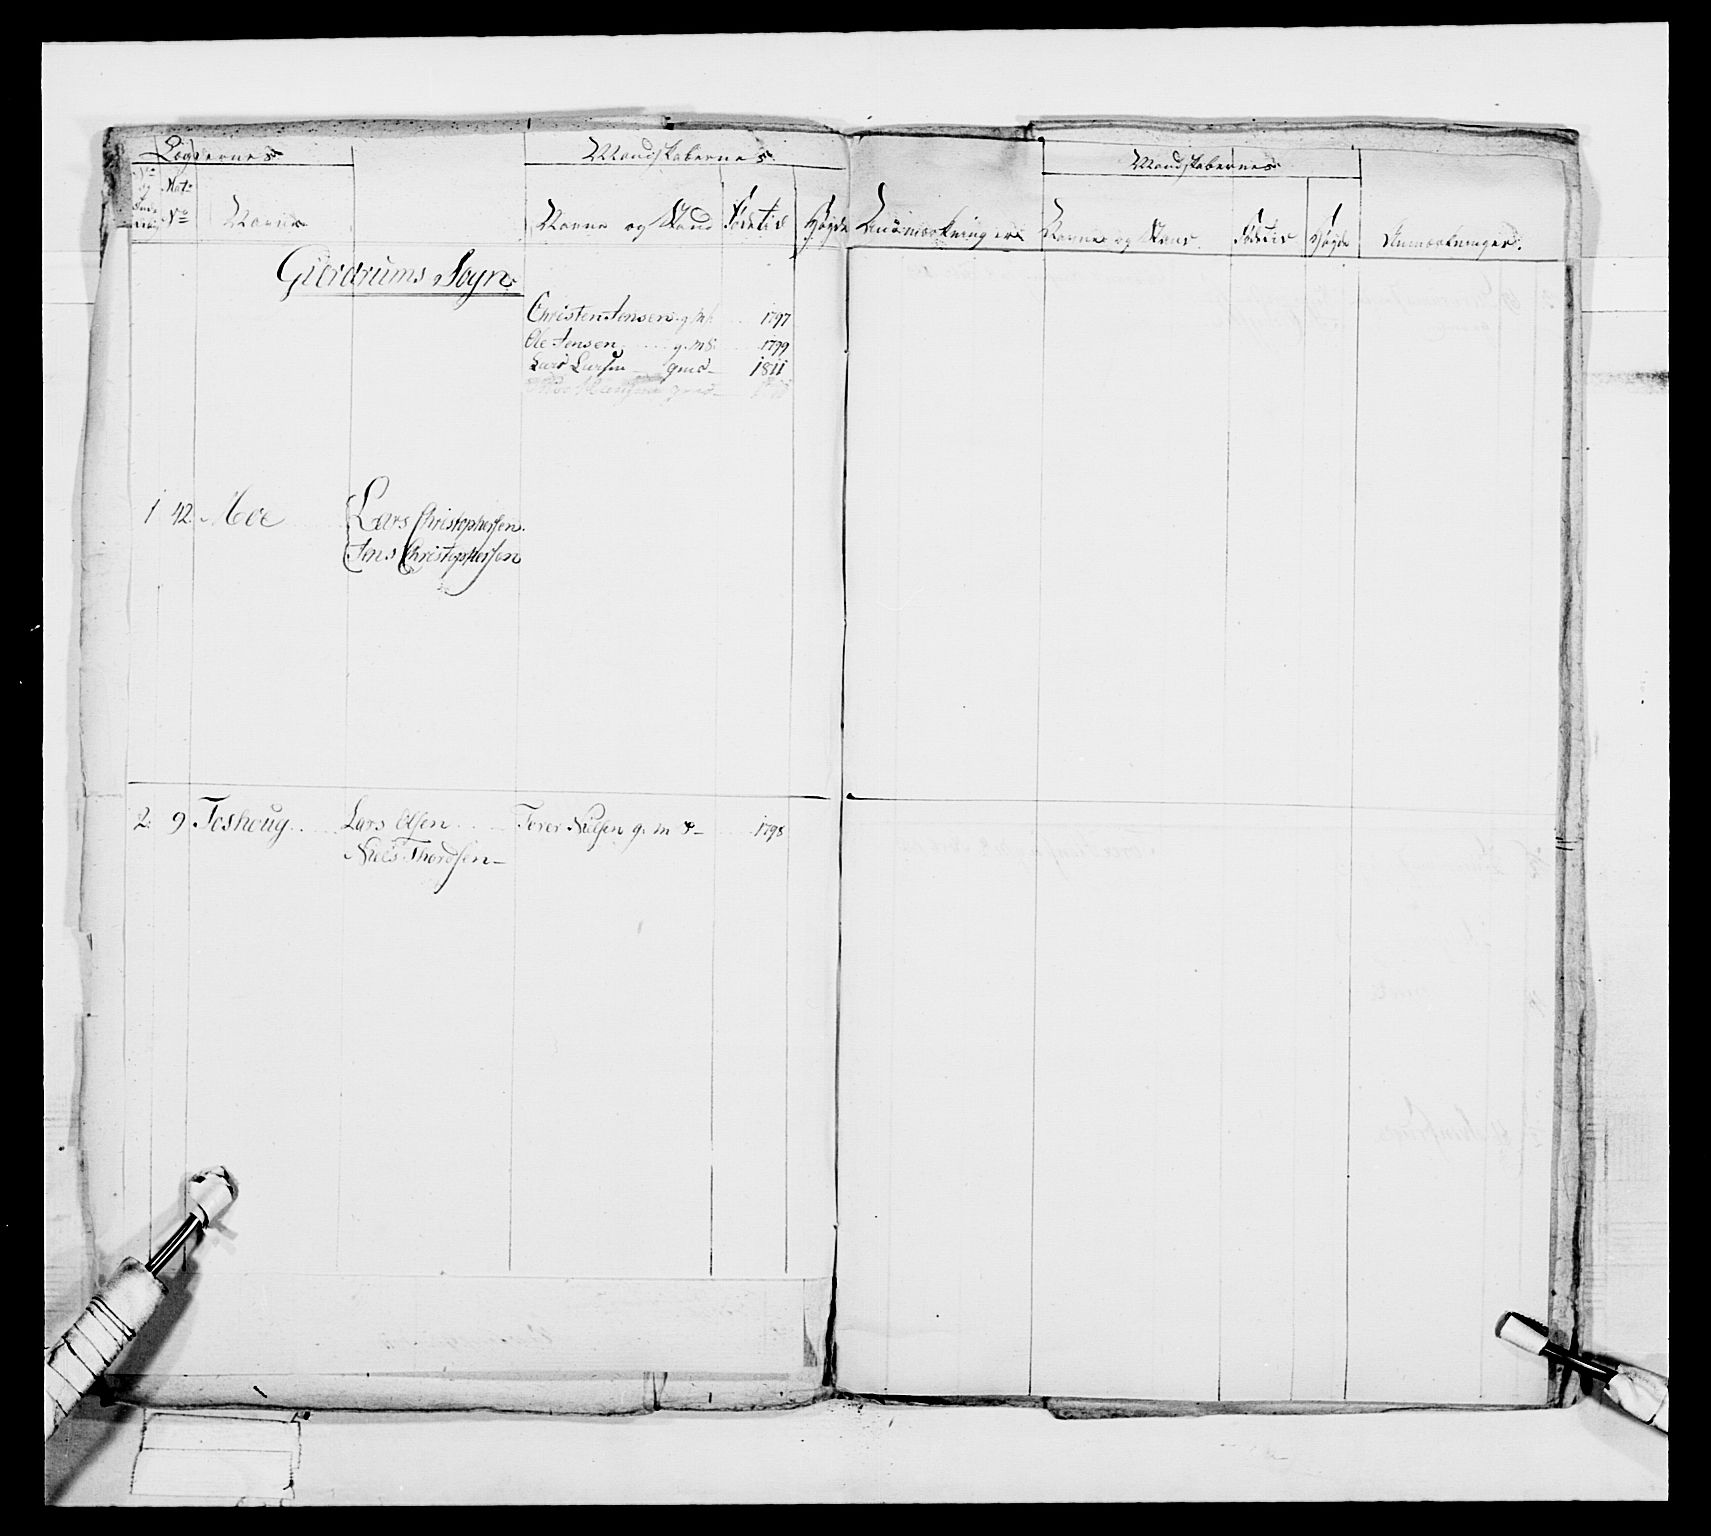 Lægdernes
Mandskabernes
Mandskabernes
Mat:
No
Navne
Navne og Stand
Fødetid
Høyde
Anmærkninger
Navne og Stand
Fødetid
Høyde
Anmærkninger.
Gierdrums Sogn.
Christen Jensen g. 1797
Ole Jensen g. 1799
Lars Larsen 1811
1 42. Moe Lars Christophersen.
Jens Christophersen
2. 9 Toshoug Lars Olsen Torer Nielsen g. m 1798
Niels Thordsen